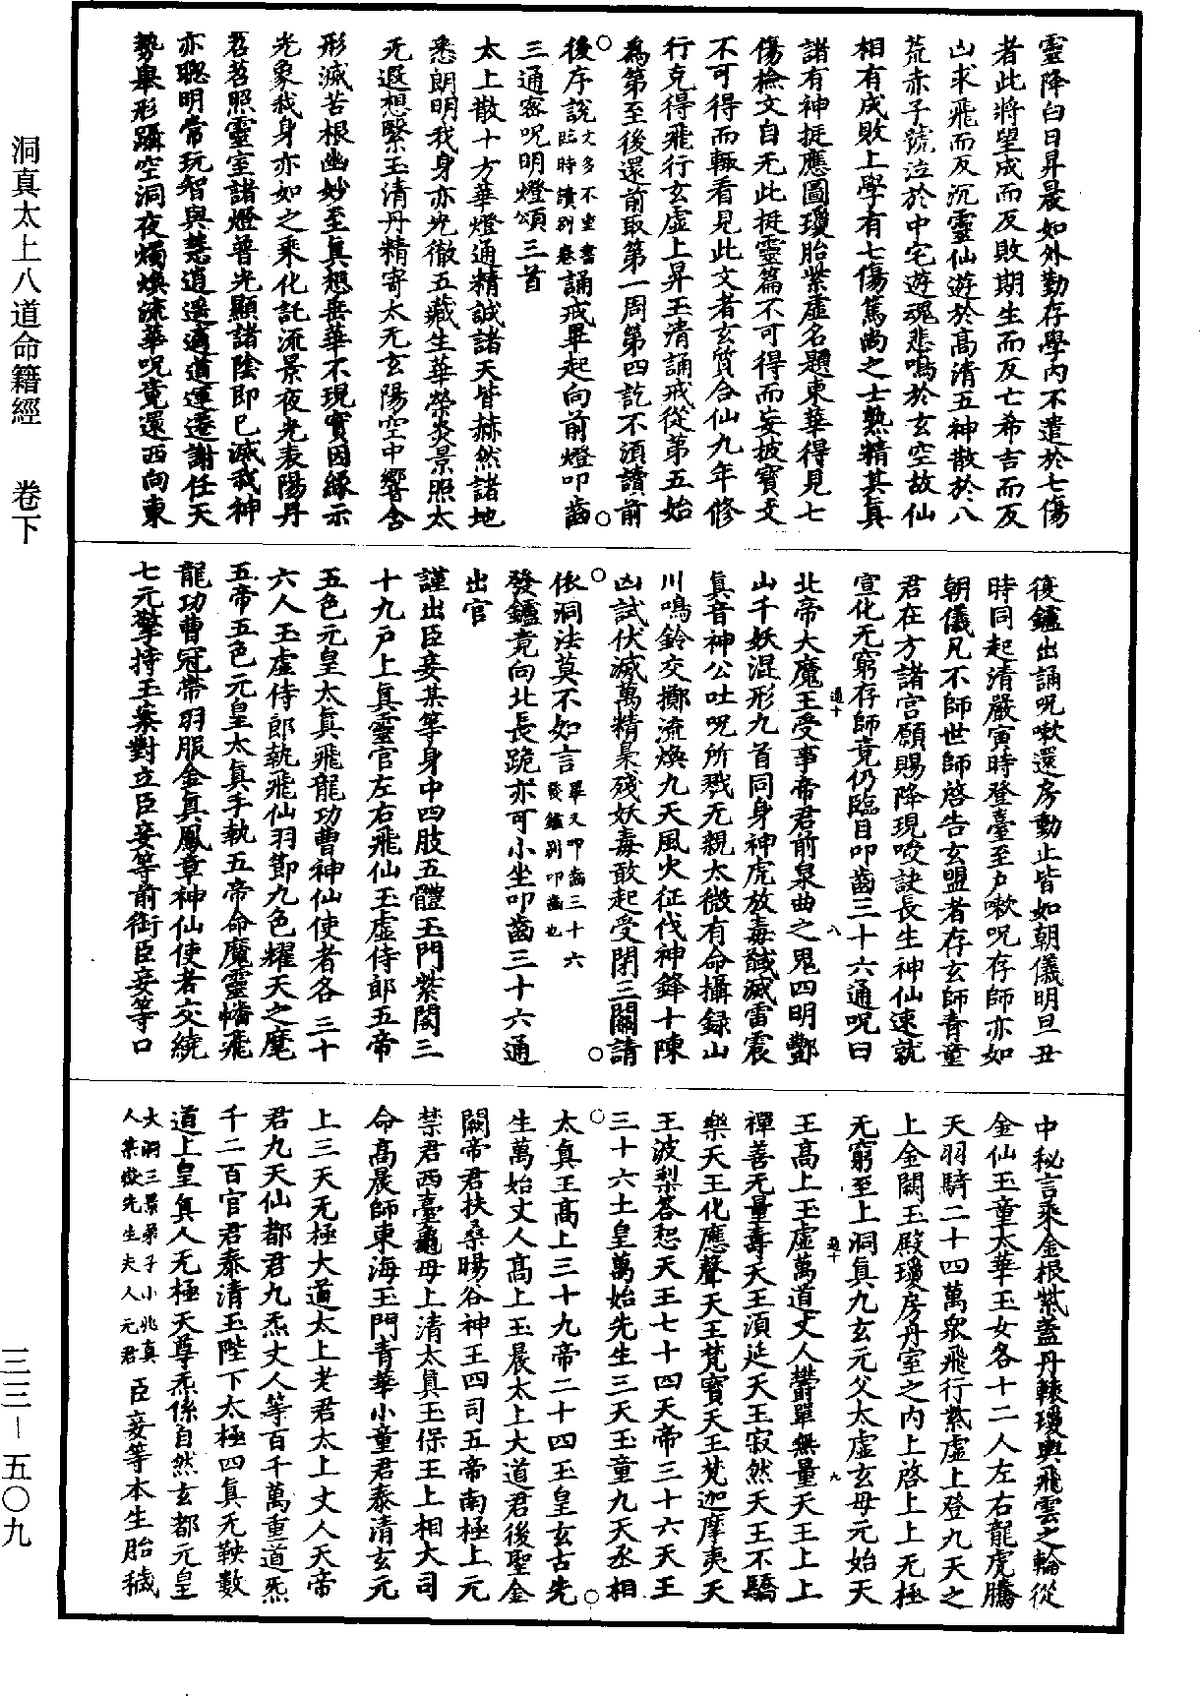 洞真太上八道命籍經　卷下
靈降白日昇晨如外勤存學內不遣於七傷
者此將望成而反敗期生而反亡希吉而反
凶求飛而反沉靈仙遊於高清五神散於八
荒赤子號泣於中宅遊魂悲鳴於玄空故仙
相有成敗上學有七傷篤尚之士熟精其真
諸有神挺應圖瓊胎紫虛名題東華得見七
傷檢文自无此挺靈篇不可得而妄披寶文
不可得而輒看見此文者玄質合仙九年修
行克得飛行玄虛上昇玉清誦戒從第五始
為第至後還前取第一周第四訖不須讀前
後序說文多不坐書臨時讀別卷誦戒畢起向前燈叩齒
三通密呪明燈頌三首
太上散十方華燈通精誠諸天皆赫然諸地
悉朗明我身亦光徹五藏生華榮炎景照太
无遐想繫玉清丹精寄太无玄陽空中響含
形滅苦根幽妙至真想垂華不現實因緣示
光象我身亦如之乘化託流景夜光表陽丹
苕苕照靈室諸燈普光顯諸陰即已滅我神
亦聰明常玩智與慧逍遥適道運遷謝任天
勢舉形躡空洞夜燭煥流華呪竟還西向東
復鑪出誦呪嗽還房動止皆如朝儀明旦丑
時同起清嚴寅時登臺至户嗽呪存師亦如
朝儀凡不師世師啓告玄盟者存玄師青童
君在方諸宮願賜降現唆訣長生神仙速就
宣化无窮存師竟仍臨目叩齒三十六通呪曰
北帝大魔王受事帝君前泉曲之鬼四明酆
山千妖混形九首同身神虎放毒馘滅雷震
真音神公吐呪所戮无親太微有命攝録山
川鳴鈴交擲流煥九天風火征伐神鋒十陳
凶試伏滅萬精梟殘妖毒敢起受閉三關請
依洞法莫不如言畢又叩齒三十六發鑪別叩齒也
發鑪竟向北長跪亦可小坐叩齒三十六通
出官
謹出臣妾某等身中四肢五體玉門紫閣三
十九户上真靈官左右飛仙玉虛侍郎五帝
五色元皇太真飛龍功曹神仙使者各三十
六人玉虛侍郎執飛仙羽節九色耀天之麾
五帝五色元皇太真手執五帝命魔靈幡飛
龍功曹冠帶羽服金真鳳章神仙使者交繞
七元擎持玉案對立臣妾等前銜臣妾等口
中秘言乘金根紫蓋丹轅瓊輿飛雲之輪從
金仙玉童太華玉女各十二人左右龍虎騰
天羽騎二十四萬衆飛行紫虛上登九天之
上金闕玉殿瓊房丹室之內上啓上上无極
无窮至上洞真九玄元父太虛玄母元始天
王高上玉虛萬道丈人鬱單無量天王上上
禪善无量壽天王湏延天王寂然天王不驕
樂天王化應聲天王梵寶天王梵迦摩夷天
王波梨答恕天王七十四天帝三十六天王
三十六土皇萬始先生三天玉童九天丞相
太真王高上三十九帝二十四玉皇玄古先
生萬始丈人高上玉晨太上大道君後聖金
闕帝君扶桑暘谷神王四司五帝南極上元
禁君西臺龜母上清太真玉保王上相大司
命高晨師東海玉門青華小童君泰清玄元
上三天无極大道太上老君太上丈人天帝
君九天仙都君九炁丈人等百千萬重道炁
千二百官君泰清玉陛下太極四真无鞅數
道上皇真人无極天尊炁係自然玄都元皇
大洞三景弟子小兆真人某嶽先生夫人元君臣妾等本生胎穢
三三－五〇九